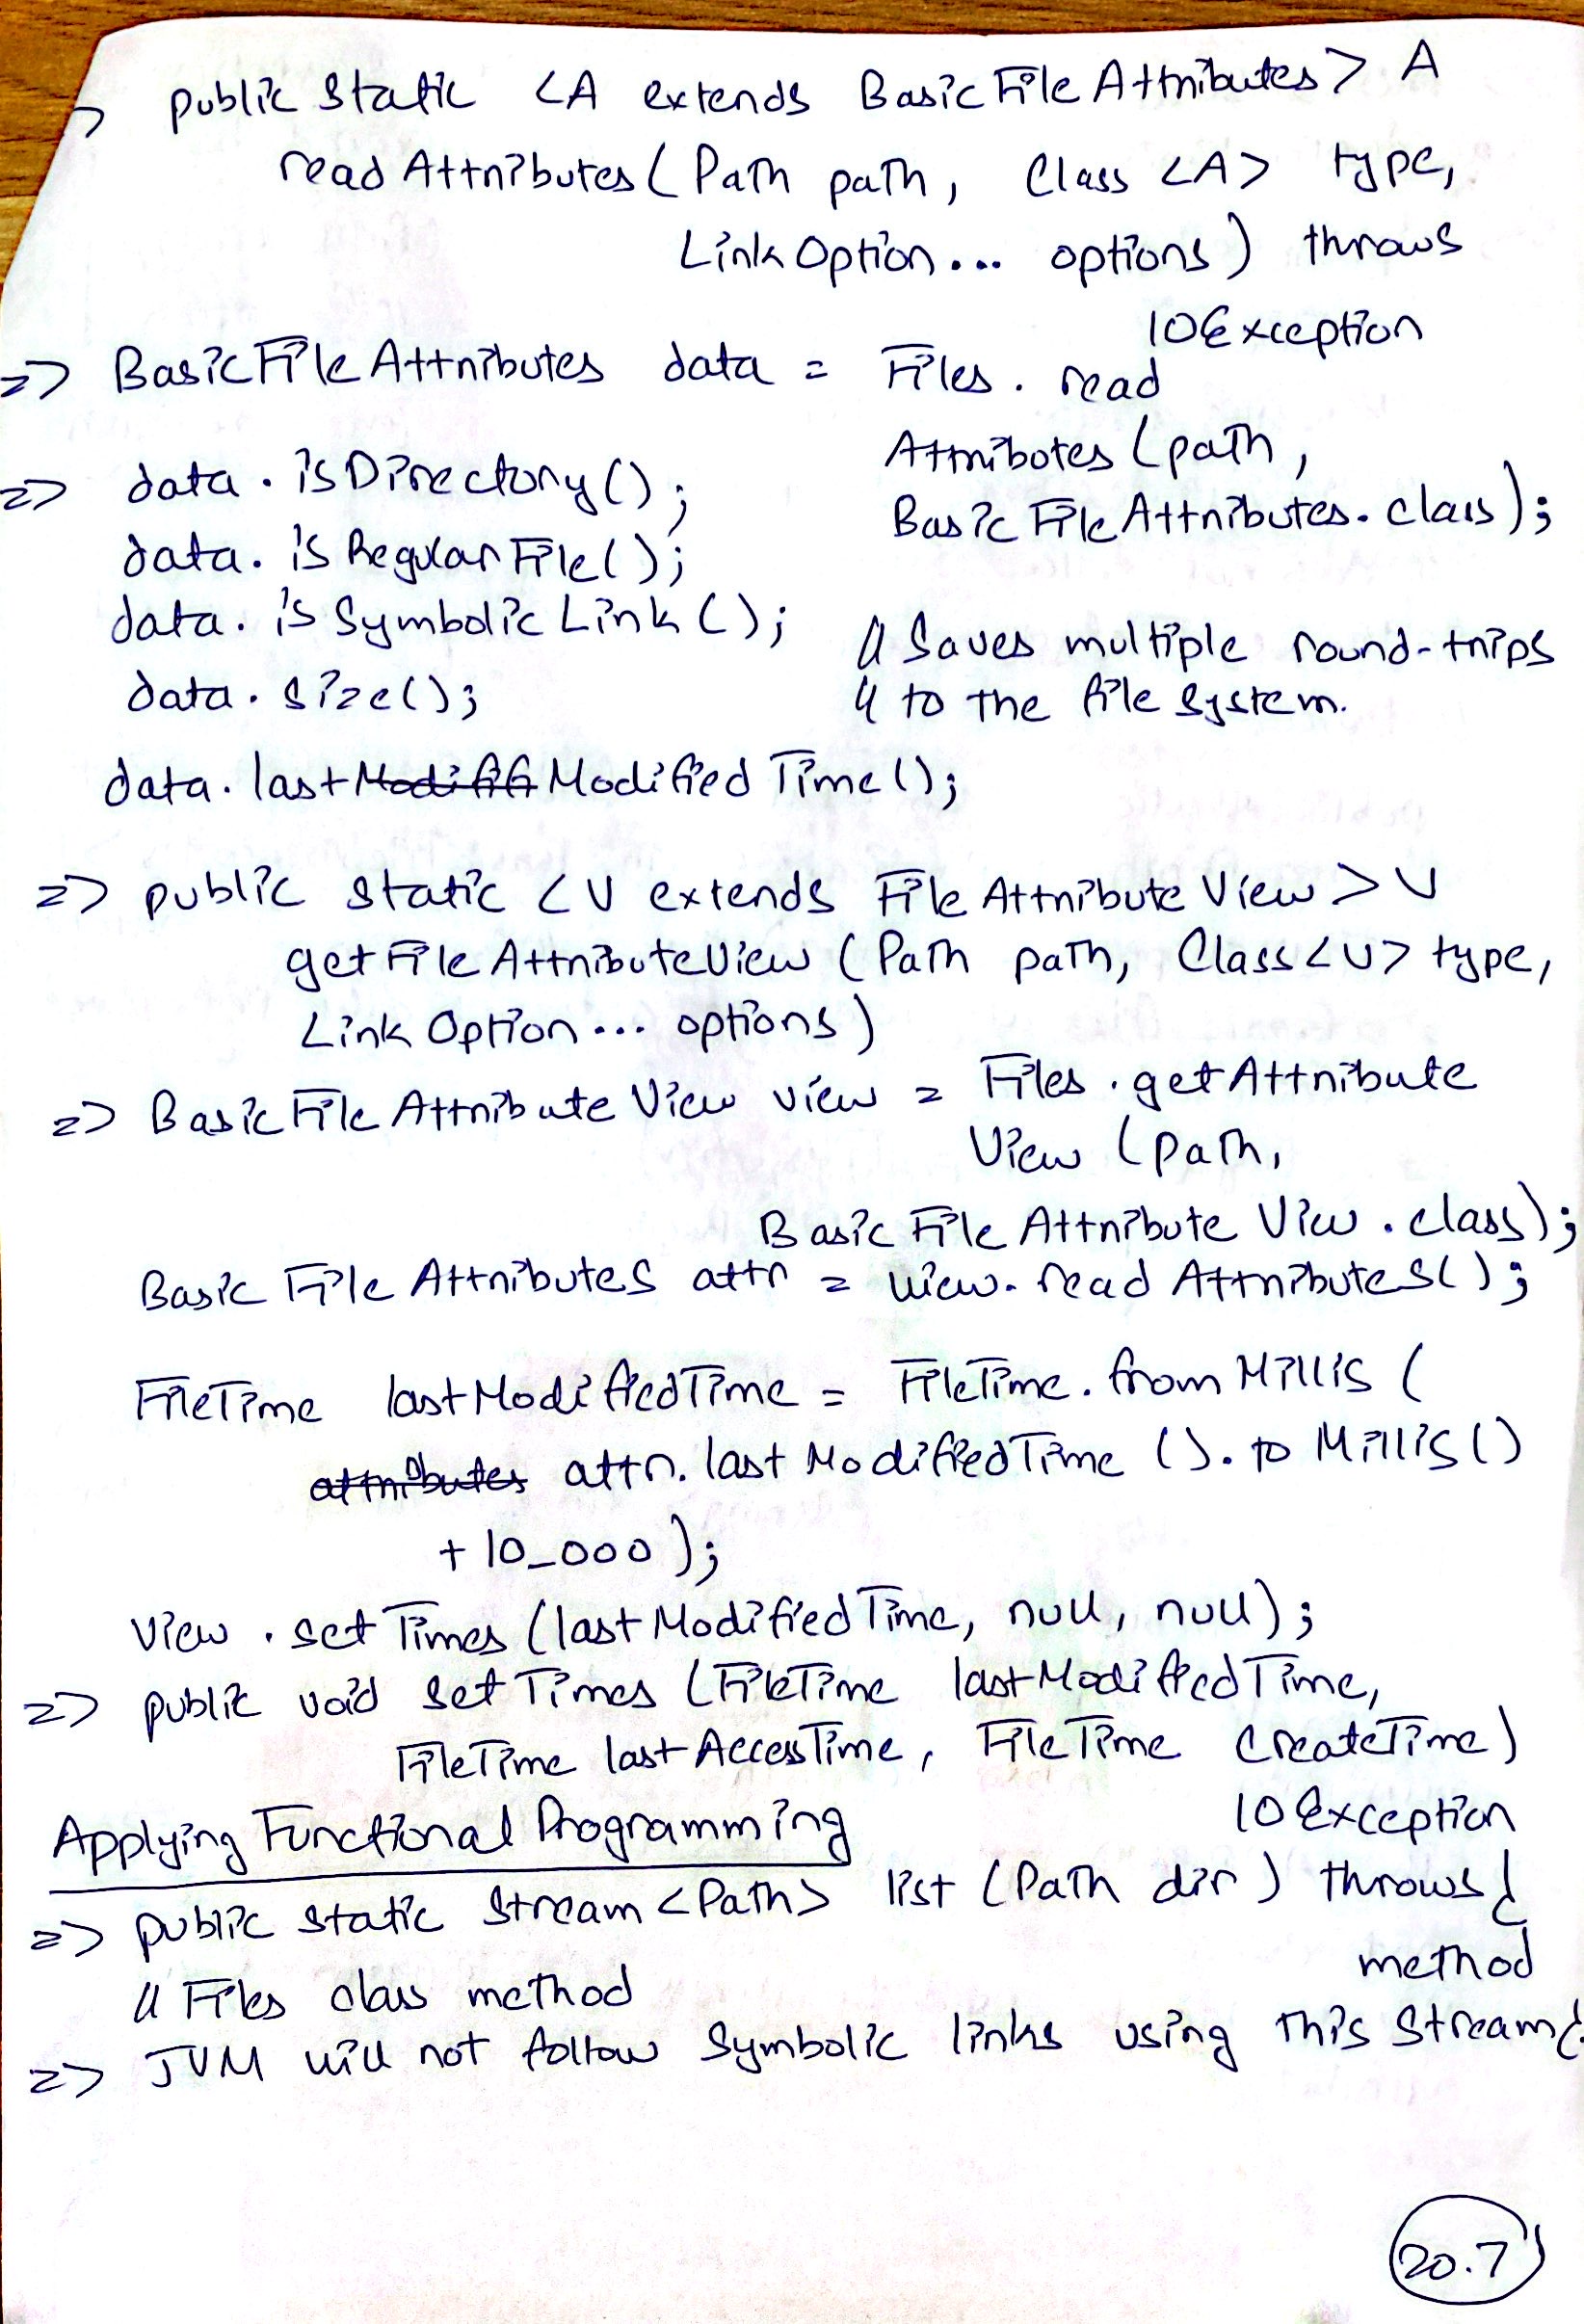 => public static <A extends BasicFileAttributes> A
readAttributes(Path path, Class <A> type,
LinkOption... options) throws
IOException
=> BasicFileAttributes data = Files. read
Attributes (path,
BasicFileAttributes. class);
=> data. isDirectory();
data. isRegularFile();
data. isSymbolicLink();
data. size();
// Saves multiple round-trips
// to the file system.
data. lastModifi ModifiedTime();
=> public static <V extends FileAttributeView> V
getFileAttributeView (Path path, Class<V> type,
LinkOption... options)
=> BasicFileAttributeView view = Files. getAttribute
View (path,
BasicFileAttribute View. class);
BasicFileAttributes attr = view. readAttributes();
FileTime lastModifiedTime = FileTime. fromMillis (
attributes attr. lastModifiedTime (). toMillis()
+ 10_000);
view. setTimes (lastModifiedTime, null, null);
=> public void setTimes (FileTime lastModifiedTime,
FileTime lastAccesTime, FileTime createTime)
Applying Functional Programming
IOException
=> public static Stream <Path> list (Path dir) throws
// Files class method
method
=> JVM will not follow Symbolic links using this Stream
20.7